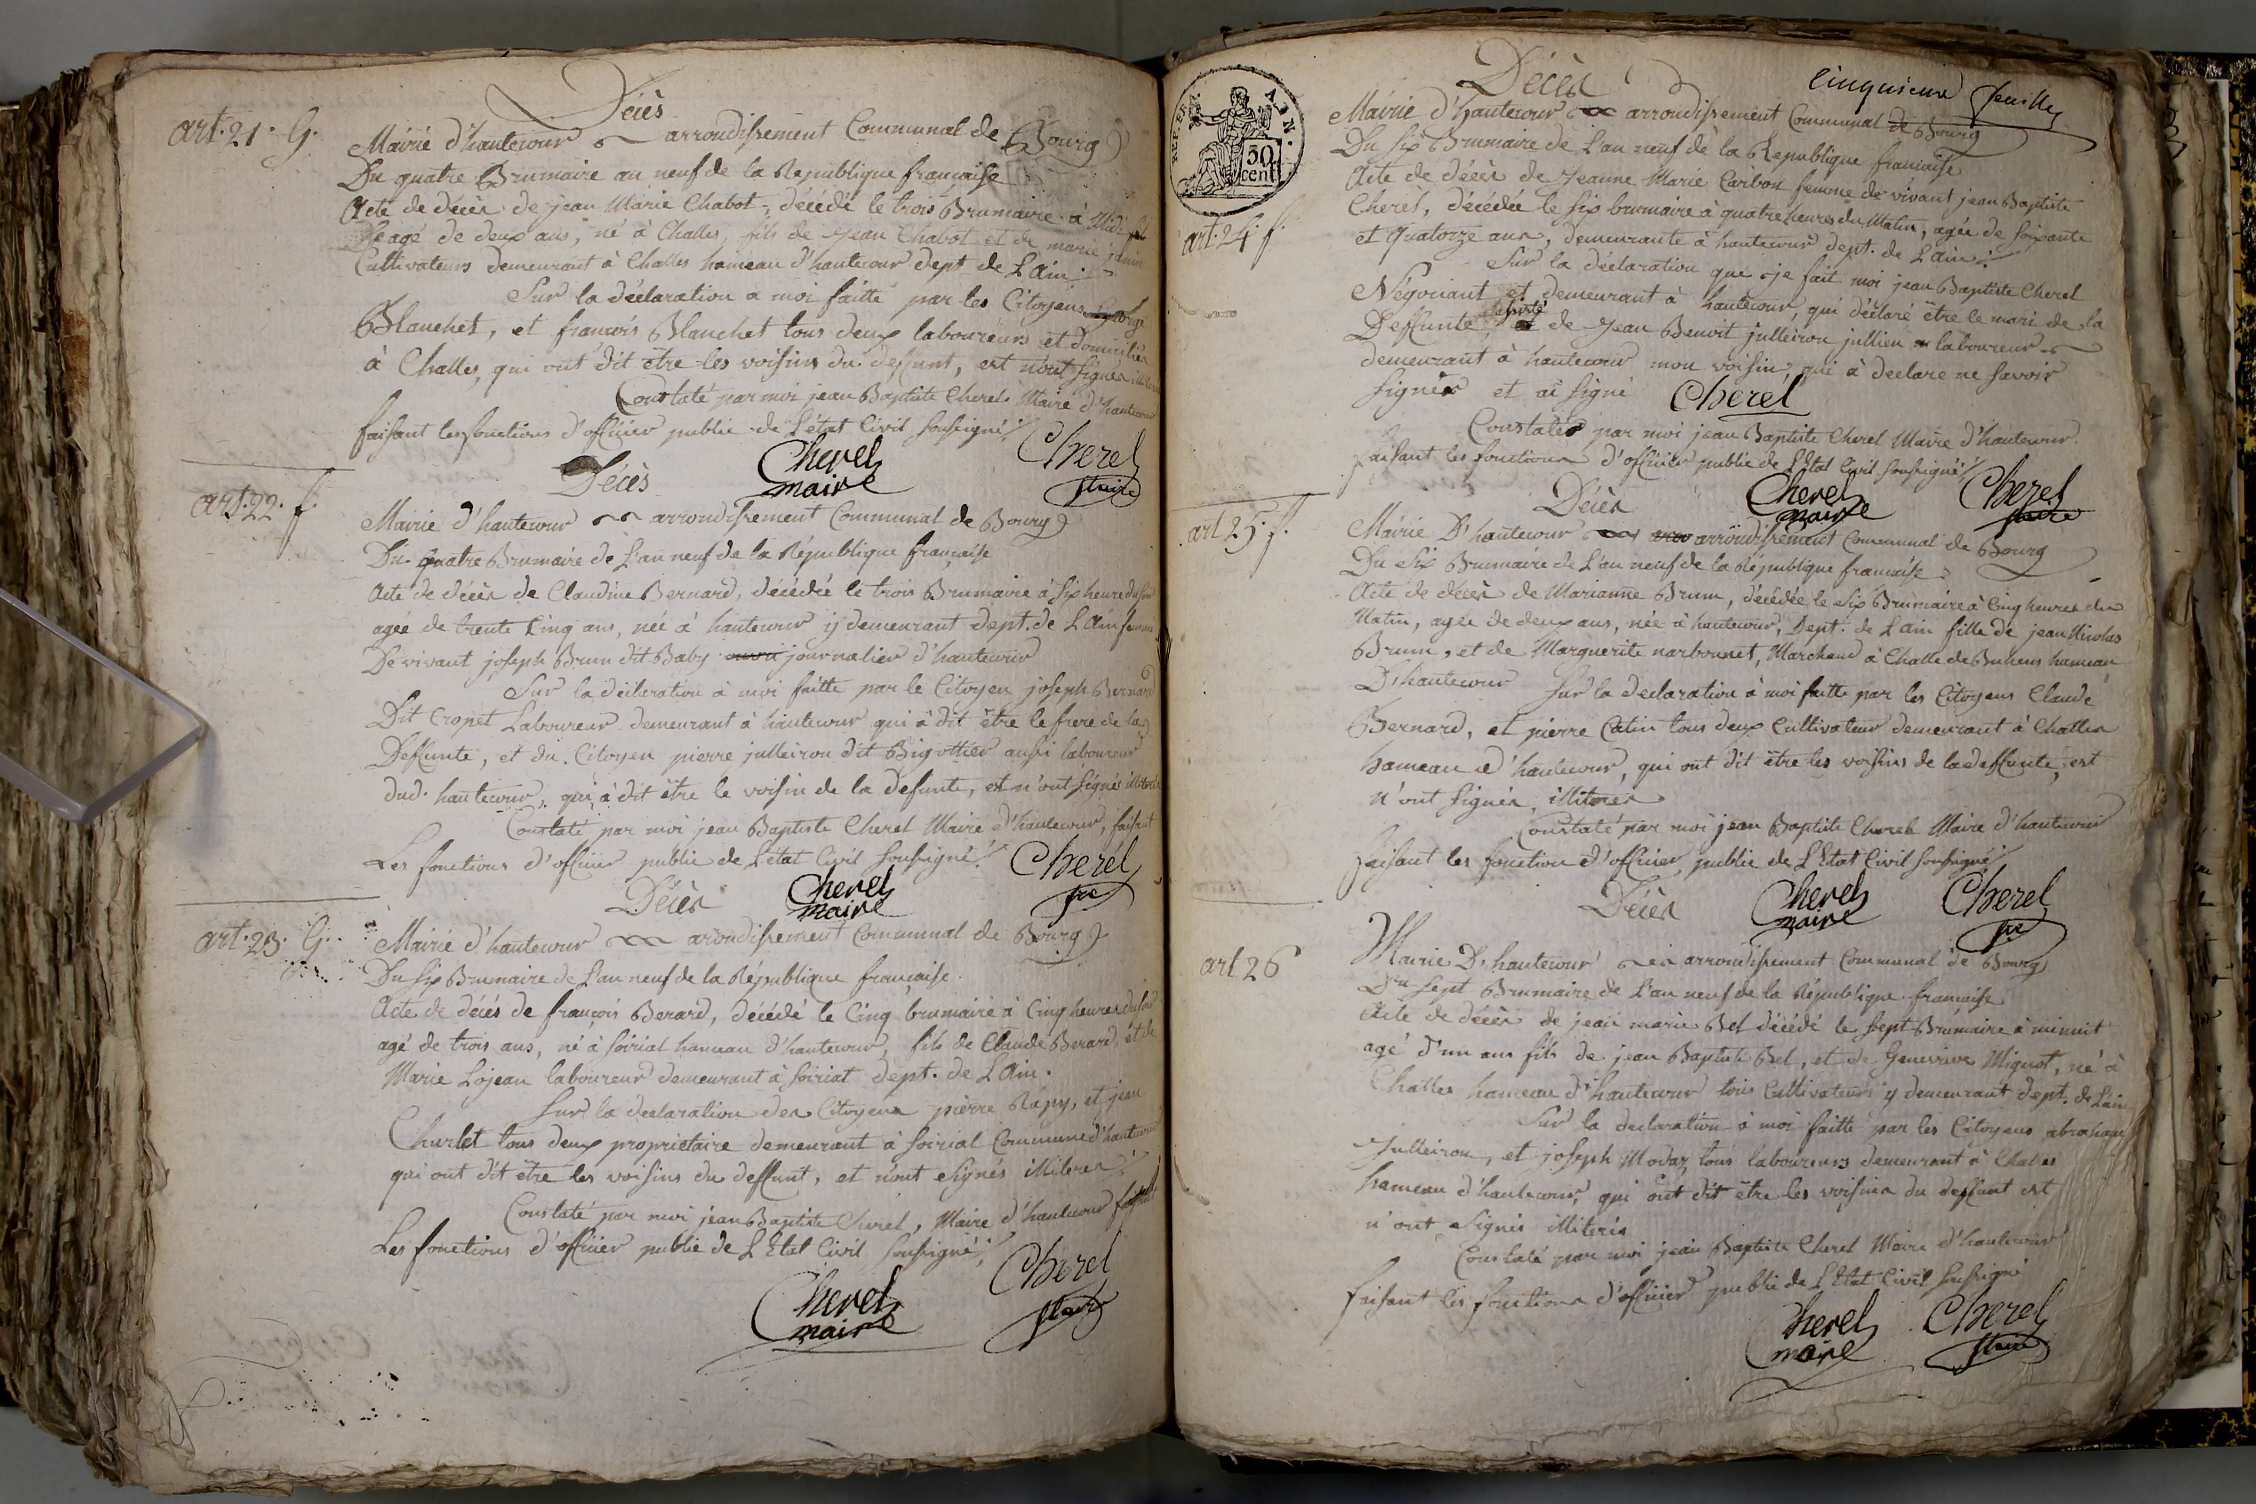 Décès
art. 21. G.
Mairie d'hautecour arrondissement Communal de Bourg
Du quatre Brumaire an neuf de la République française
Acte de décès de jean Marie Chabot, décédé le trois Brumaire à
agé de deux ans, né à Challes, fils de Jean Chabot et de marie
Cultivateurs demeurant à Challes hameau d'hautecour dept de L'Ain
Sur la déclaration a moi faitte par les Citoyens
Blanchet, et françois Blanchet tous deux laboureurs et domiciliés
à Challes, qui ont dit être les voisins du deffunt, est n'ont signés
Constaté par moi jean Baptiste Cherel Maire d'hautecour
faisant les fonctions d'officier public de L'état Civil soussigné
Cherel maire
Cherel
Décès
art. 22. f.
Mairie d'hautecour arrondissement Communal de Bourg
Du quatre Brumaire de L'an neuf de la République française
Acte de décès de Claudine Bernard, décédée le trois Brumaire à six heure du soir
agée de trente cinq ans, née à hautecour y demeurant dept. de L'Ain femme
De vivant joseph Brun dit Baby journalier d'hautecour
Sur la déclaration à moi faitte par le Citoyen joseph Bernard
Dit Cropet Laboureur demeurant à hautecour qui à dit être le frere de la
Deffunte, et du Citoyen pierre julleiron dit Bigottier aussi laboureur
dud. hautecour, qui à dit être le voisin de la defunte, et n'ont signés
Constaté par moi jean Baptiste Cherel Maire d'hautecour, faisant
Les fonctions d'officier public de L'état Civil soussigné
Cherel maire
Cherél
Décès
art. 23. G.
Mairie d'hautecour arondissement Communal de Bourg
Du six Brumaire de L'an neuf de la République française
Acte de décés de françois Berard, décédé le Cinq brumaire à Cinq heures du soir
agé de trois ans, né à soiriat hameau d'hautecour, fils de Claude Berard, et de
Marie Lojean laboureur demeurant à soiriat dept. de L'Ain.
Sur la declaration des Citoyens pierre Rapy, et jean
Churlet tous deux proprietaire demeurant à soiriat Commune d'hautecour
qui ont dit être les voisins du deffunt, et n'ont signés illiteres
Constaté par moi jean Baptiste Cherel, Maire d'hautecour faisant
Les fonctions d'officier public de L'Etat Civil soussigné
Cherel maire
Cherel
Cinquieme feuille
Décès
30 cent
art. 24. f.
Mairie d'hautecour arrondissement Communal de Bourg
Du six Brumaire de L'an neuf de la République française
Acte de décès de Jeanne Marie Carbon femme de vivant jean Baptiste
Cherel, décédée le six brumaire à quatre heures du Matin, agée de soixante
et quatorze ans, demeurante à hautecour dept. de L'ain
Sur la déclaration que je fait moi jean Baptiste Cherel
Négociant et demeurant à hautecour, qui déclaré être le mari de la
Deffunte de Jean Benoit julleiron jullien laboureur
demeurant à hautecour mon voisin, qui à declare ne savoir
signer et ai signé Cherel
Constaté par moi jean Baptiste Cherel Maire d'hautecour
faisant les fonctions d'officier public de L'Etat Civil soussigné
Cherel maire
Cherel
Décès
art 25. f.
Mairie D'hautecour arrondissement Communal de Bourg
Du six Brumaire de L'an neuf de la République française
Acte de décès de Marianne Brun, décédée le six Brumaire à Cinq heures du
Matin, agée de deux ans, née à hautecour, Dept. de L'ain fille de jean Nicolas
Brun, et de Marguerite narbonnet, Marchand à Challe de hameau
D'hautecour Sur la declaration à moi faitte par les Citoyens Claude
Bernard, et pierre Catin tous deux Cultivateur demeurant à Challes
hameau d'hautecour, qui ont dit être les voisins de la deffunte, est
n'ont signés illiteres
Constaté par moi jean Baptiste Cherel Maire d'hautecour
faisant les fonction d'officier public de L'Etat Civil soussigné
Cherel maire
Cherel
Décès
art 26
Mairie D'hautecour arrondissement Communal de Bourg
Du sept Brumaire de L'an neuf de la République française
Acte de décès de jean marie Bel décédé le sept Brumaire à minuit
agé d'un ans fils de jean Baptiste Bel, et de Genevieve Miguot, né à
Challes hameau d'hautecour tous Cultivateurs y demeurant dept. de L'ain
Sur la declaration à moi faitte par les Citoyens abraham
Julleiron, et joseph Modaz tous laboureurs demeurant à Challes
hameau d'hautecour, qui ont dit être les voisins du deffunt est
n'ont signés illiteres
Constaté par moi jean Baptiste Cherel Maire d'hautecour
faisant les fonctions d'officier public de L'Etat Civil soussigné
Cherel maire
Cherel